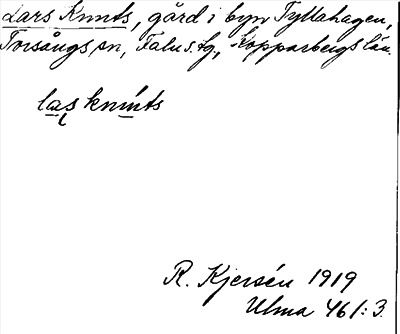 Lars Knuts, gård i byn Tyllahagen,
Torsångs sn, Falu s. tg, Kopparbergs län.
las knuts
R. Kjersén 1919
Ulma 461:3.